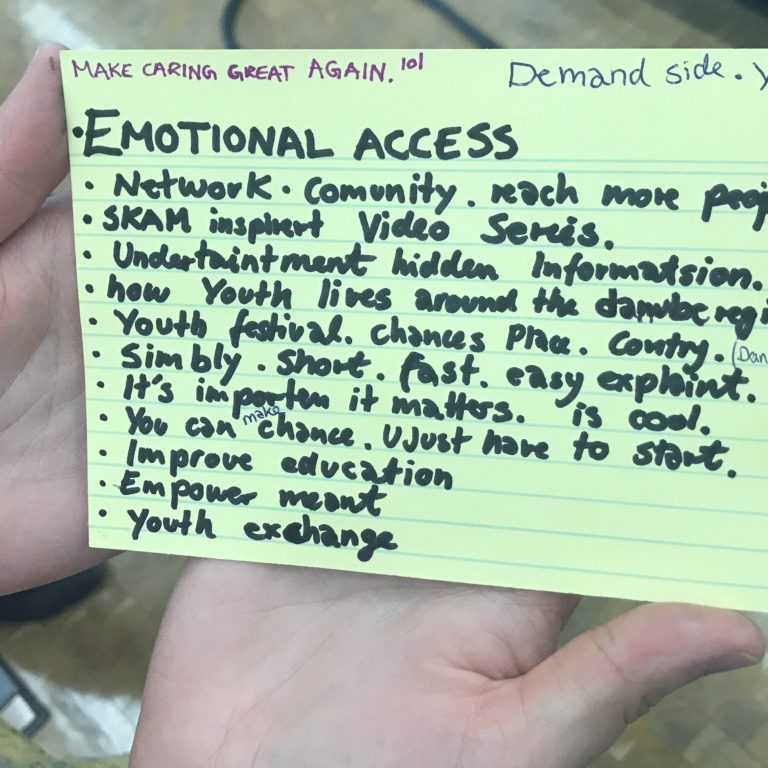 MAKE CARING GREAT AGAIN. lol
Demand side.
• EMOTIONAL ACCESS
• Network. Comunity. reach more
• SKAM inspiert Video Sereis.
• Undertaintment hidden Informatsion.
• how Youth lives around the danube regi
• Youth festival. Chances Place. Contry. (Dan
• Simbly. Short. fast. easy explaint.
• It's importen it matters. is cool.
• You can make chance. U Just have to start.
• Improve education
• Empower meant
• Youth exchange